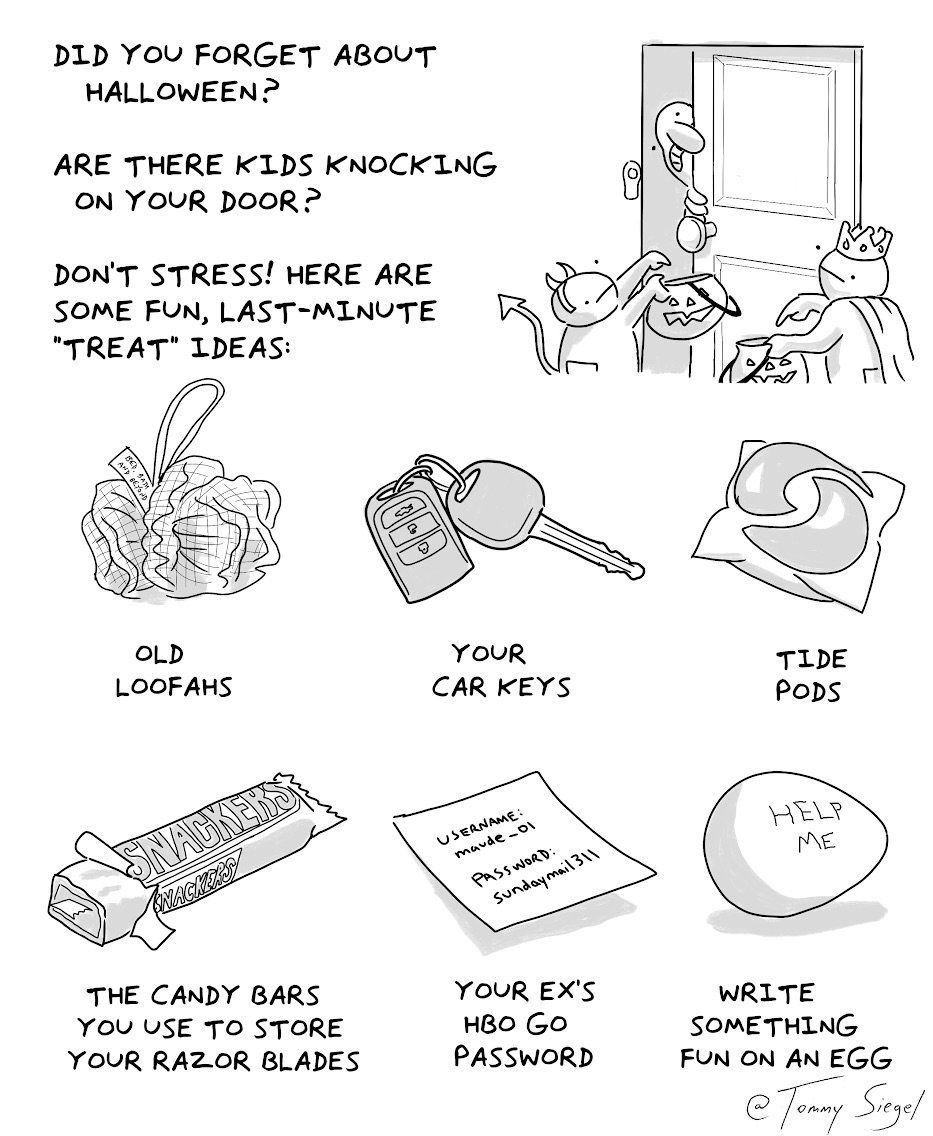 DID YOU FORGET ABOUT
HALLOWEEN?
ARE THERE KIDS KNOCKING
ON YOUR DOOR?
DON'T STRESS! HERE ARE
SOME FUN, LAST-MINUTE
"TREAT" IDEAS:
BED, BATH
AND BEYOND
OLD
LOOFAHS
YOUR
CAR KEYS
TIDE
PODS
SNACKERS
SNACKERS
THE CANDY BARS
YOU USE TO STORE
YOUR RAZOR BLADES
USERNAME:
maude_01
PASSWORD:
sundaymail311
YOUR EX'S
HBO GO
PASSWORD
HELP
ME
WRITE
SOMETHING
FUN ON AN EGG
@Tommy Siegel